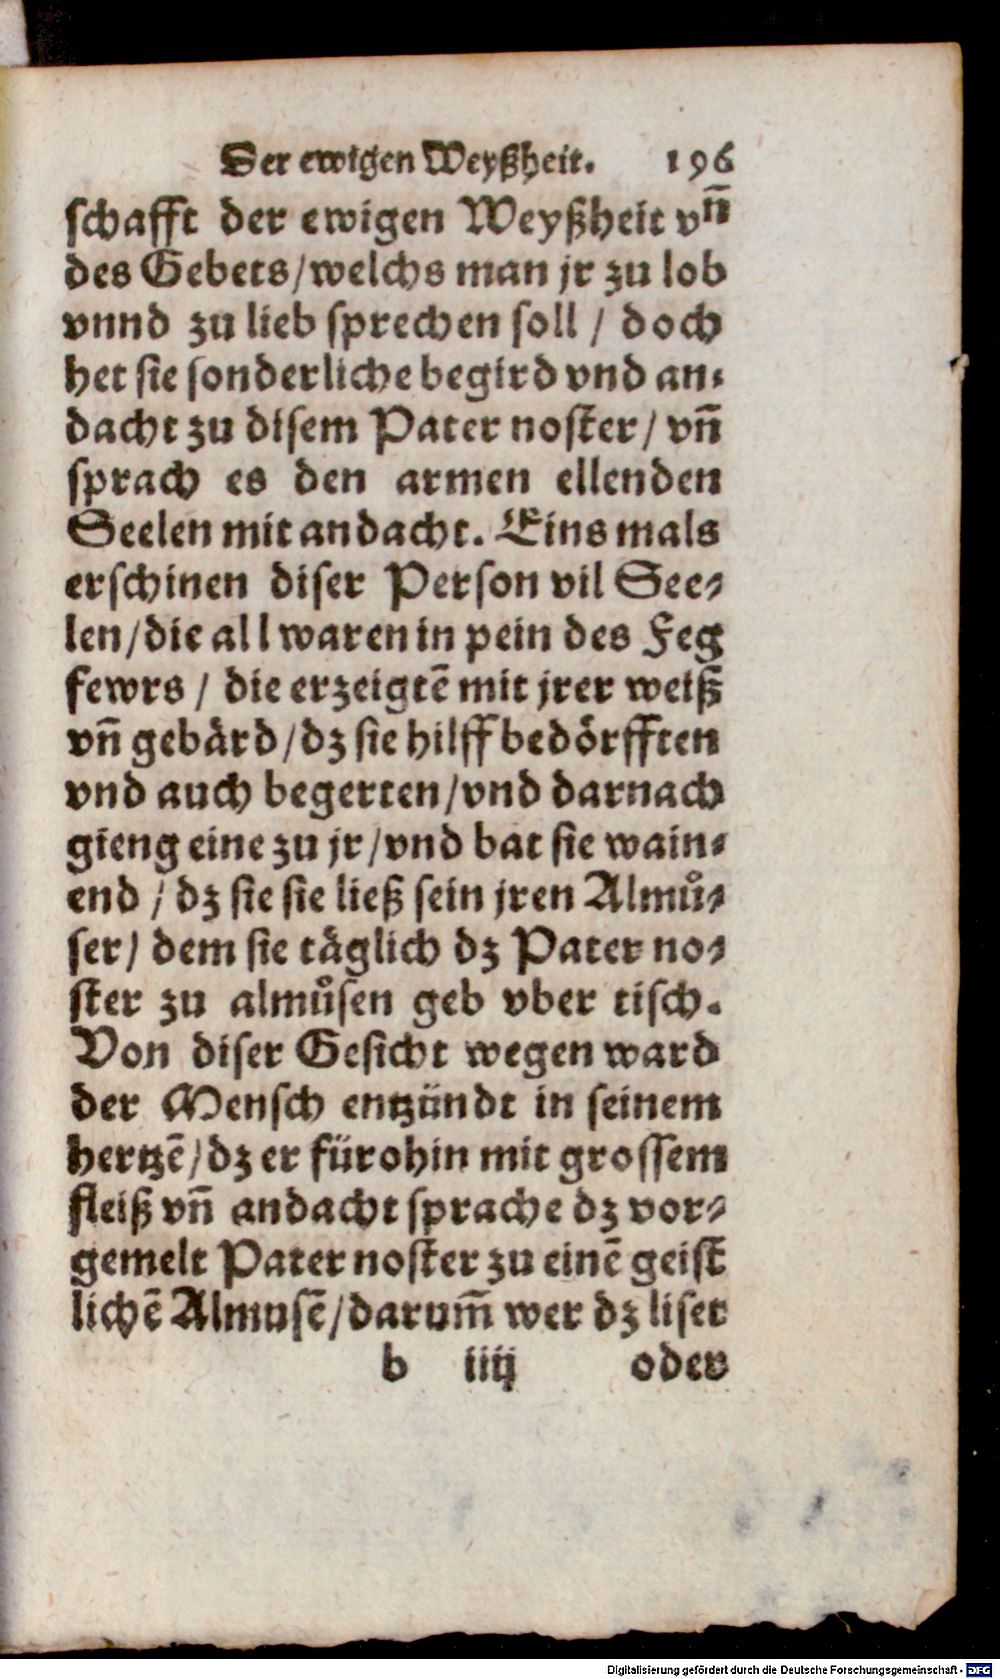 Der ewigen Weyßheit. 196
schafft der ewigen Weyßheit vn̄
des Gebets/welchs man jr zu lob
vnnd zu lieb sprechen soll / doch
het sie sonderliche begird vnd an⸗
dacht zu disem Pater noster/ vn̄
sprach es den armen ellenden
Seelen mit andacht. Eins mals
erschinen diser Person vil See⸗
len/die all waren in pein des Feg
fewrs / die erzeigtē mit jrer weiß
vn̄ gebärd/dz sie hilff bedörfften
vnd auch begerten/vnd darnach
gieng eine zu jr/vnd bat sie wain⸗
end / dz sie sie ließ sein jren Almů⸗
ser/ dem sie täglich dz Pater no⸗
ster zu almůsen geb vber tisch.
Von diser Gesicht wegen ward
der Mensch entzündt in seinem
hertzē/dz er fürohin mit grossem
fleiß vn̄ andacht sprache dz vor⸗
gemelt Pater noster zu einē geist
lichē Almusē/darum̄ wer dz liset
b iiij oder
Digitalisierung gefördert durch die Deutsche Forschungsgemeinschaft - DFG